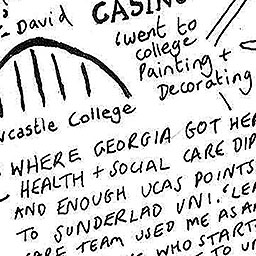 - David
CASINO
'went to
college
Painting +
Decorating
Newcastle College
WHERE GEORGIA GOT HER
HEALTH + SOCIAL CARE DIP
AND ENOUGH UCAS POINTS
TO SUNDERLAD UNI. 'LEA
CARE TEAM USED ME AS AN
WHO START
TO UN